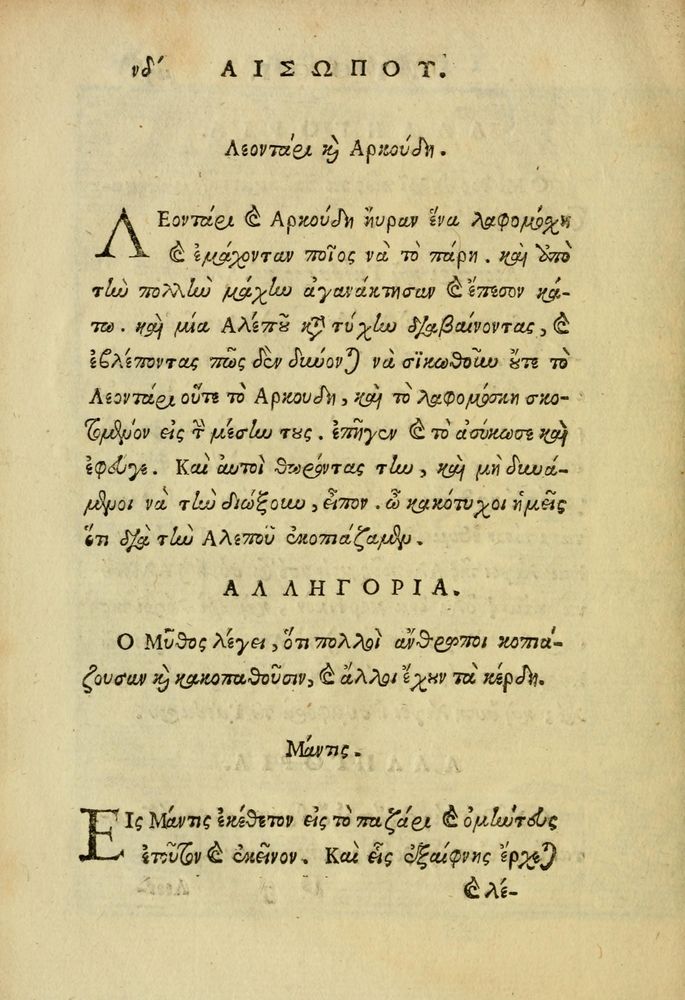 νδ´ ΑΙΣΩΠΟΥ.
Λεοντάρι καὶ Αρκούδη.
ΛΕοντάρι καὶ Αρκούδη ηὕραν ἕνα λαφομόσχη
καὶ ἐμάχονταν ποῖος νὰ τὸ πάρη. καὶ ὑπὸ
τὴν πολλὴν μάχην ἀγανάκτησαν καὶ ἔπεσον κά-
τω. καὶ μία Αλέπου κατὰ τύχην διαβαίνοντας, καὶ
ἐβλέποντας πῶς δὲν δύνονται νὰ σϊκωθοῦν οὔτε τὸ
Λεοντάρι οὔτε τὸ Αρκουδη, καὶ τὸ λαφομόσκη σκο-
τωμένον εἰς τὴν μέσην τους. ἐπῆγεν καὶ τὸ ἀσύκωσε καὶ
ἐφευγε. Και ἀυτοὶ θωρόντας την, καὶ μὴ δυνά-
μενοι νὰ τὴν διώξουν, εἶπον. ὦ κακότυχοι ἡμεῖς
ὅτι διὰ τὴν Αλεποῦ ἐκοπιάζαμεν.
ΑΛΛΗΓΟΡΙΑ.
Ο Μῦθος λέγει, ὅτι πολλοὶ ἄνθρωποι κοπιά-
ζουσαν καὶ κακοπαθοῦσιν, καὶ ἄλλοι ἔχουν τὰ κέρδη.
Μάντις.
ΕΙς Μάντις ἐκέθετον εἰς τὸ παζάρι καὶ ὁμιλῶντους
ἐτοῦτον καὶ ἐκεῖνον. Καὶ εἷς ἐξαίφνης ἔρχεται
καὶ λέ-